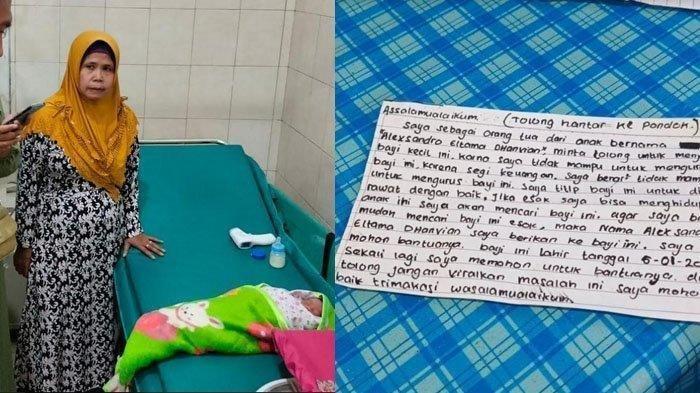 Assalamualaikum (Tolong hantar ke pondok.)
Saya sebagai orang tua dari anak bernama
"Alexsandro Eltama Dhanvian" minta tolong untuk
bayi kecil ini. karna saya tidak mampu untuk
bayi ini karena segi keuangan. saya berat tidak
untuk mengurus bayi ini. saya titip bayi ini untuk di
rawat dengan baik. Jika esok saya bisa
anak ini saya akan mencari bayi ini. agar saya
mudah mencari bayi ini esok, maka nama
Eltama Dhanvian saya berikan ke bayi ini. saya
mohon bantuanya. bayi ini lahir tanggal 6-01-
Sekali lagi saya memohon untuk bantuanya,
tolong jangan viralkan masalah ini saya
baik trimakasi wasalamualaikum